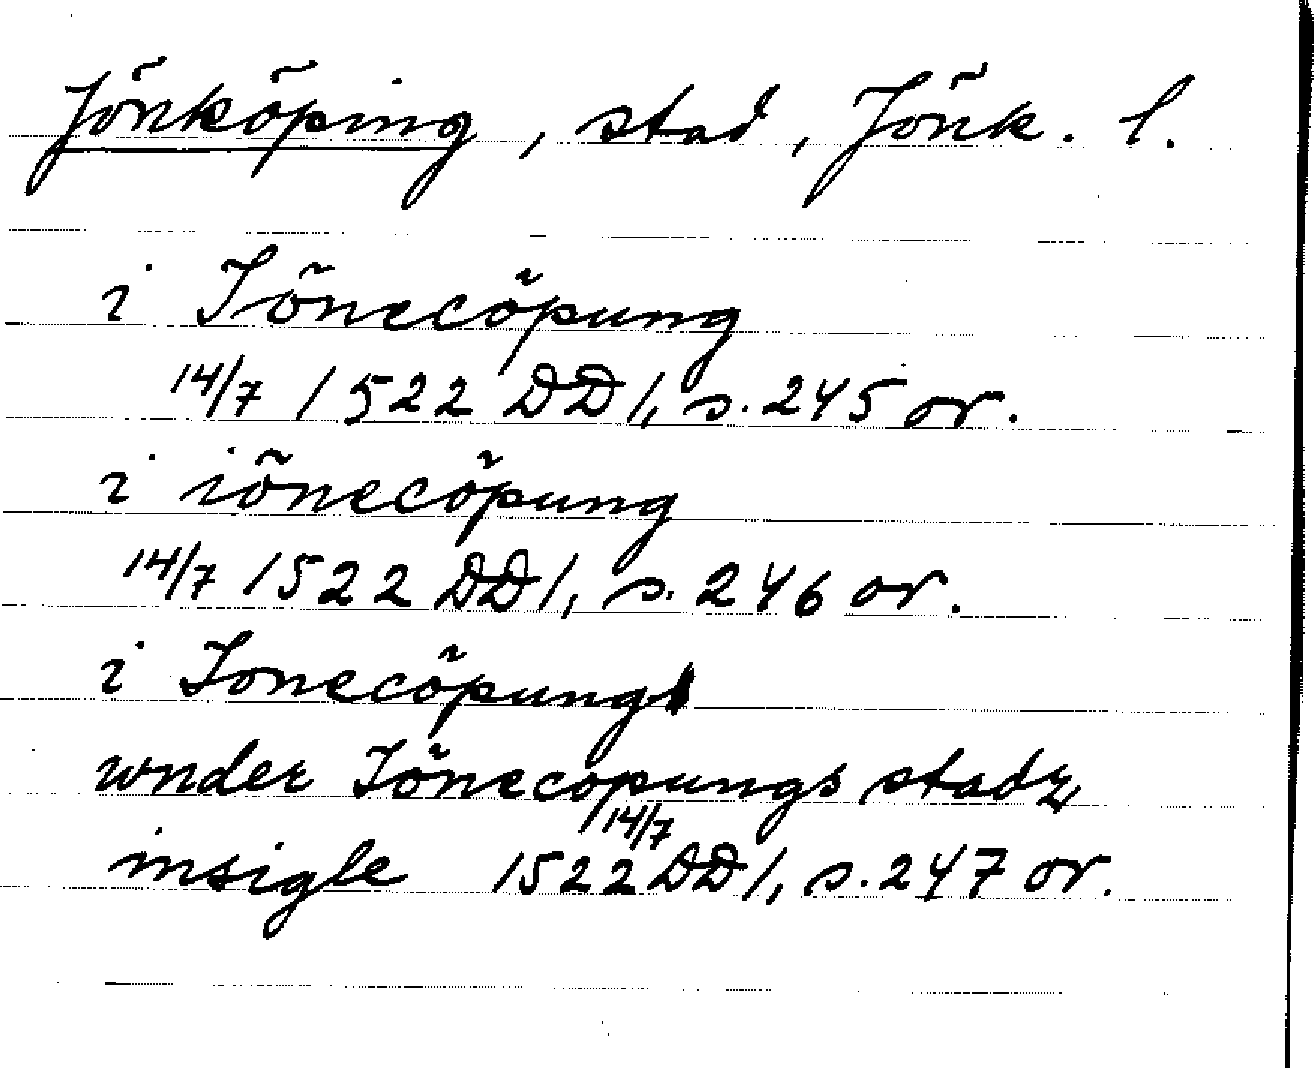 Jönköping, stad, Jönk. l.
i Iönecöpung
14/7 1522 DD 1, s. 245 or.
i iönecöpung
14/7 1522 DD 1, s. 246 or.
i Ionecöpung
wnder Iönecopungs stadz
insigle 14/7 1522 DD 1, s. 247 or.